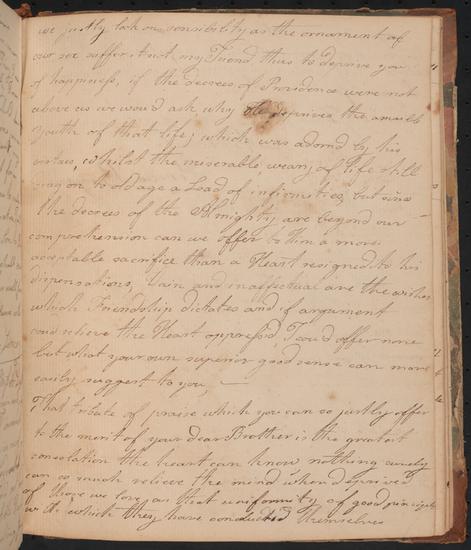 we justly look on sensibility as the ornament of
our sex suffer it not my Friend thus to deprive you
of happiness, if the decrees of Providence were not
above us we would ask why He deprives the amiable
youth of that life, which was adornd by his
virtues, whilst the miserable, weary of life still
on to old age a Load of infirmities, but since
the decrees of the Almighty are beyond our
comprehension can we offer to Him a more
acceptable sacrifice than a Heart resigned to his
dispensations, Vain and inaffectual are the wishes
which Friendship dictates and if argument
coud relieve the Heart oppressd, I coud offer none
but what your own superior good sense can more
easily suggest to you, —
That tribute of praise which you can so justly offer
to the merit of your dear Brother is the greatest
consolation the heart can know nothing surely
can so much relieve the mind when deprived
of those we love, as that uniformity of good principle
with which they have conducted themselves